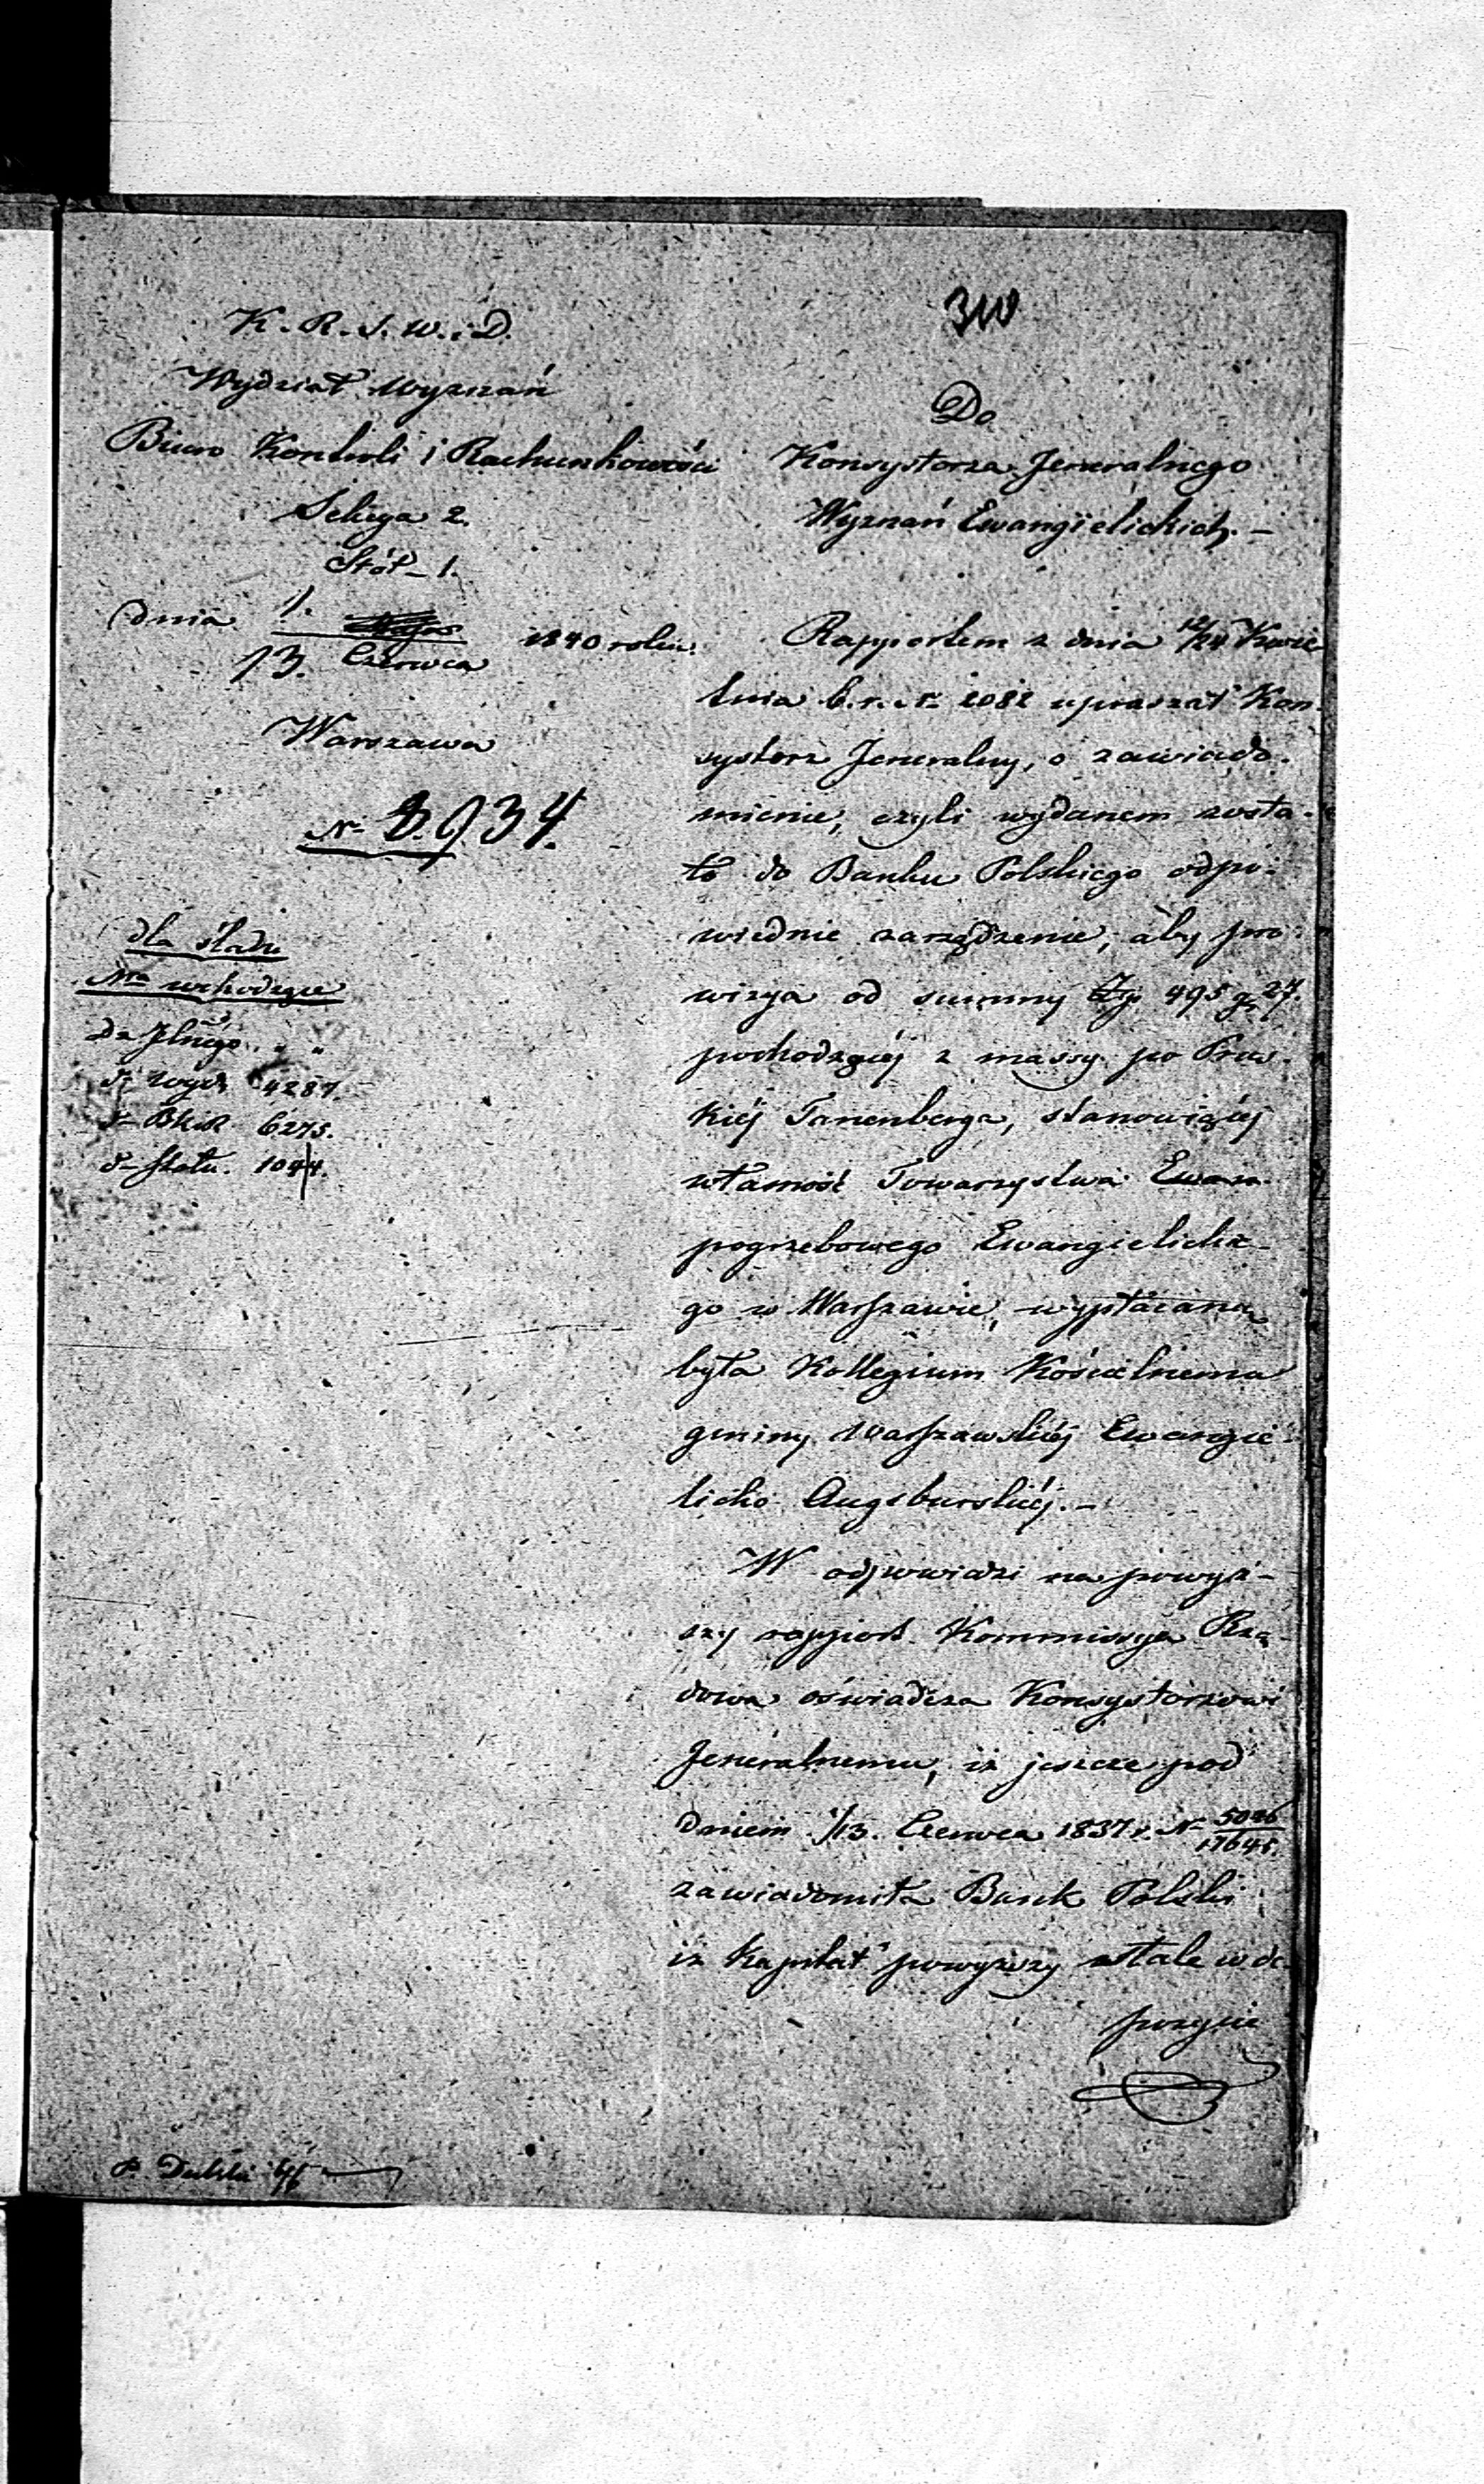 310
K. R. S. W. i D.
Wydział Wyznań
Biuro Kontroli i Rachunkowości
Sekcya 2.
Stół 1.
dnia 1./13. Czerwca 1840 roku.
Warszawa
N 3.934.
dla śladu
Nra wchodzące
Dz Jlnego " "
d- Wydz 4287.
d- BKiR 6275.
d- Stołu. 1044.
Do
Konsystorza Jeneralnego
Wyznań Ewangielickich. –
Rapportem z dnia 12/24 Kwie
tnia b. r. N 2082 upraszał Kon-
systorz Jeneralny, o zawiado-
mienie, czyli wydanem zosta-
ło do Banku Polskiego odpo-
wiednie zarządzenie, aby pro-
wizya od summy Zp 495 gr 27.
pochodzącéj z massy po
kiéj Tanenberga, stanowiącéj
własność Towarzystwa
pogrzebowego Ewangielickie-
go w Warszawie, wypłacana
była Kollegium Kościelnemu
gminy Warszawskiéj Ewangie-
licko Augsburskiéj. –
W odpowiedzi na powyż-
szy rapport Kommissya Rzą-
dowa oświadcza Konsystorzowi
Jeneralnemu, iż jeszcze pod
dniem 1/13. Czerwca 1837 r. N 5026/17645.
zawiadomiła Bank Polski
iż Kapitał powyższy stale w de
pozycie